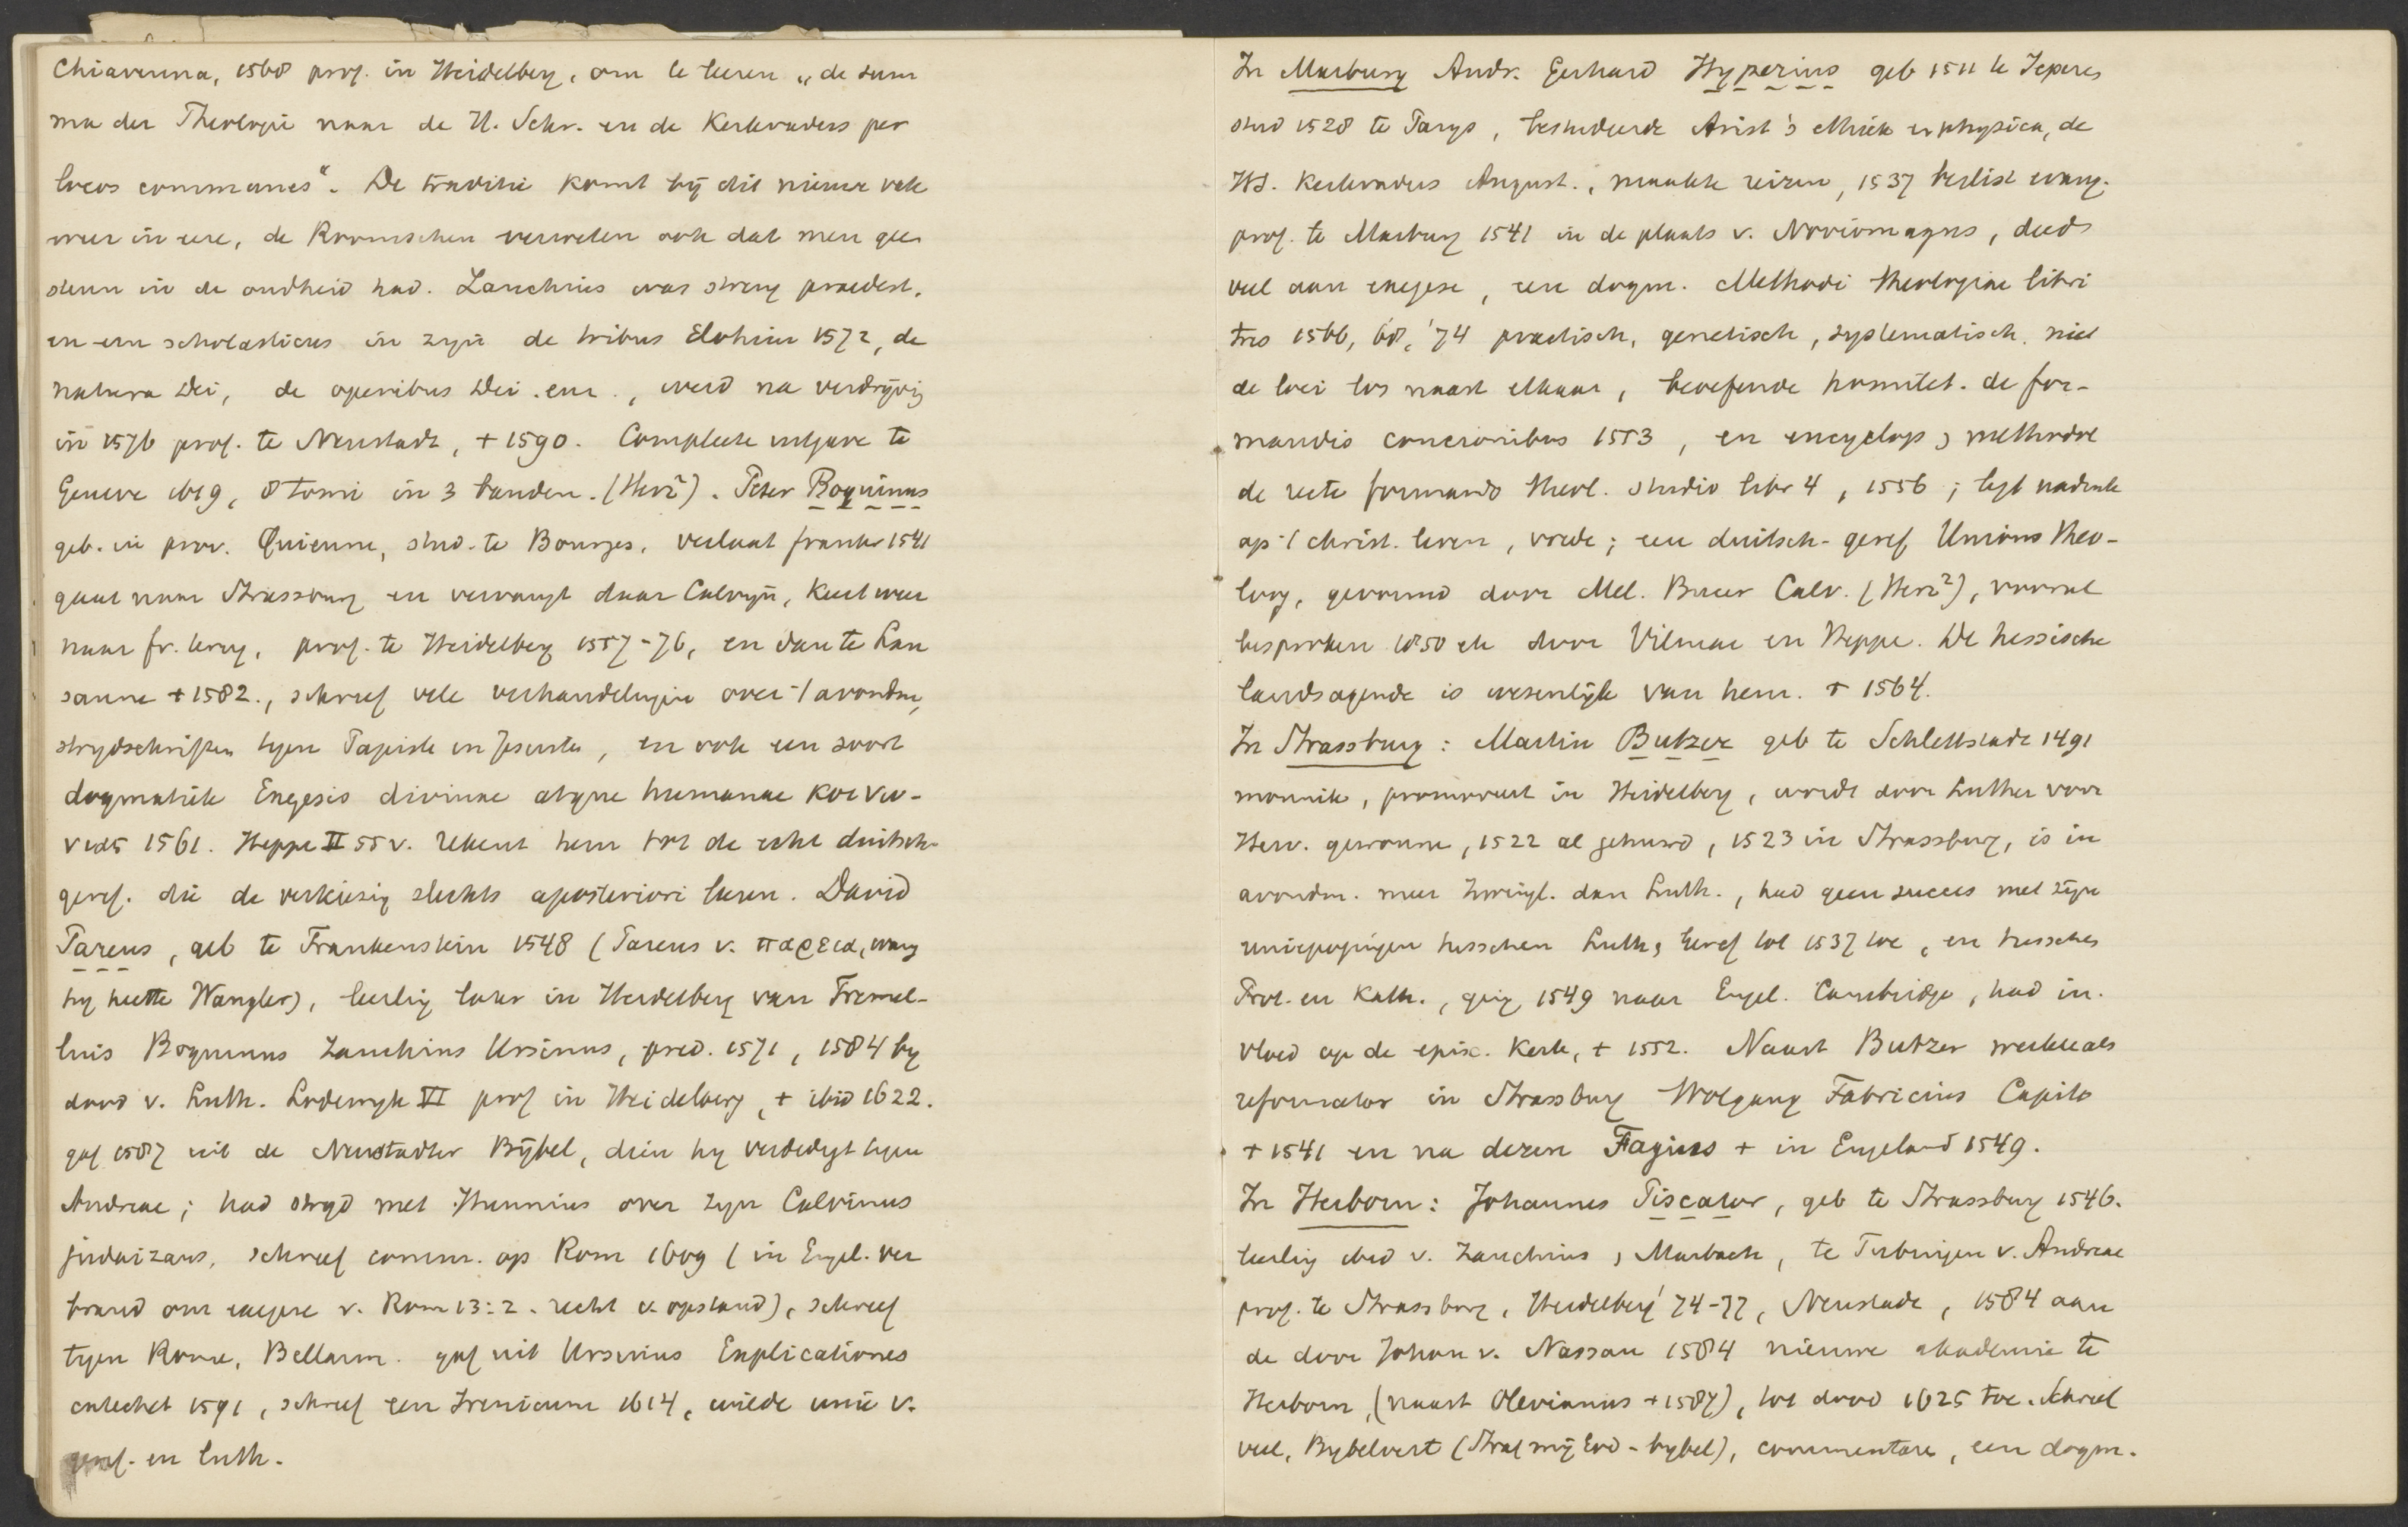 Chiavenna, 1568 prof. in Heidelberg, om te leeren „de sum
ma der Theologie naar de H. Schr. en de Kerkvaders per
locos communes“. De traditie komt bij dit nieuwe volk
weer in eere, de Roomschen verweten ook dat men geen
steun in de oudheid had. Zanchius was streng praedest.
en een scholasticus in zijn de tribus Elohim 1572, de
natura Dei, de operibus Dei. enz., werd na verdrijvig
in 1576 prof. te Neustadt, + 1590. Compleete uitgave te
Geneve 1619, 8 tomi in 3 banden. (Herz²). Peter Boquinus
geb. in prov. Quienne, stud. te Bourges, verlaat frankr 1541
gaat naar Strassburg en vervangt daar Calvijn, keert weer
naar fr. terug, prof. te Heidelberg 1557-76, en dan te Lau
sanne + 1582., schreef vele verhandelingen over 't avondm,
strydschriften tegen Papiste en Jesuite, en ook een soort
dogmatiek Exegesis divinae atque humanae κοινω-
νιας 1561. Heppe II 55 v. rekent hem tot de echt duitsch-
geref. die de verkiezig slechts aposteriori leeren. David
Pareus, geb te Frankenstein 1548 (Pareus v. παρεια, wang
hy heette Wangler), leerlig later in Heidelberg van Tremel-
lius Boquinus Zanchius Ursinus, pred. 1571, 1584 by
dood v. Luth. Lodewyk VI prof in Heidelberg, + ibid 1622.
gaf 1587 uit de Neustadter Bijbel, dien hy verdedigt tegen
Andreae; had strijd met Hunnius over zijn Calvinus
judaizans, schreef comm. op Rom 1609 (in Engel. ver
brand om exegese v. Rom 13:2. recht v. opstand), schreef
tegen Rome, Bellarm. gaf uit Ursinius Explicationes
catechet 1591, schreef een Irenicum 1614, wilde unie v.
geref. en luth.
In Marburg Andr. Gerhard Hyperius geb 1511 te Ieperen
stud 1528 te Parijs, bestudeerde Arist's ethiek en physica, de
HS. Kerkvaders August., maakte reizen, 1537 beslist evang.
prof. te Marburg 1541 in de plaats v. Noviomagus, deed
veel aan exegese, een dogm. Methodi theologiae libri
tres 1566, 68, '74 practisch, genetisch, systematisch. niet
de loci los naast elkaar, beoefende homilet. de for-
mandis concionibus 1553, en encyclop & methodol
de recte formando theol. studio libr 4, 1556; legt nadruk
op 't christ. leven, vrede; een duitsch-geref Unions theo-
loog, gevormd door Mel. Bucer Calv. (Herz²), vooral
besproken 1850 etc door Vilmar en Heppe. De hessische
landsagende is wesenlijk van hem. + 1564.
In Strassburg: Martin Butzer geb te Schlettstadt 1491
monnik, promoveert in Heidelberg, wordt door Luther voor
Herv. gewonne, 1522 al gehuwd, 1523 in Strassburg, is in
avondm. meer Zwingl. dan Luth., had geen succes met zijn
uniepogingen tusschen Luth & Geref tot 1537 toe, en tusschen
Prot. en Kath., ging 1549 naar Engel. Cambridge, had in-
vloed op de episc. kerk, + 1552. Naast Butzer werkte als
reformator in Strassburg Wolgang Fabricius Capito
+ 1541 en na dezen Fagius + in Engeland 1549.
In Herborn: Johannes Piscator, geb te Strassburg 1546.
leerlig ibid v. Zanchius, Marbach, te Tubingen v. Andreae
prof. te Strassburg, Heidelberg '74-77, Neustadt, 1584 aan
de door Johan v. Nassau 1584 nieuwe akademie te
Herborn, (naast Olevianus + 1587), tot dood 1625 toe. Schreef
veel, Bybelvert (Straf mij God-bybel), commentare, een dogm.